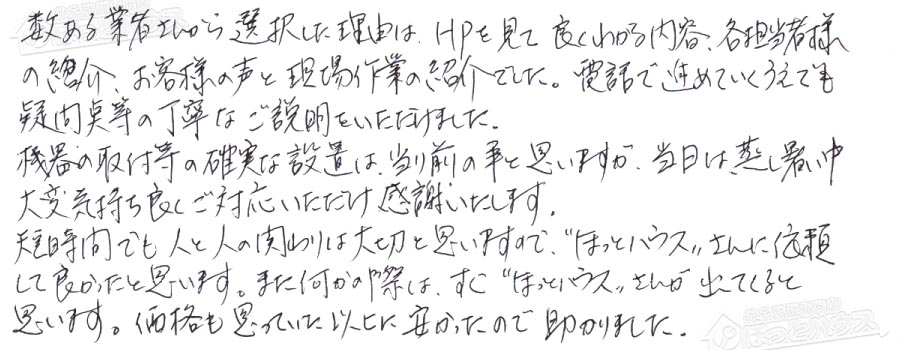 数ある業者さんから選択した理由は、HPを見て良くわかる内容、各担当者様
の紹介、お客様の声と現場作業の紹介でした。電話で進めていくうえでも
疑問点等の丁寧なご説明をいただけました。
機器の取付等の確実な設置は、当り前の事と思いますが、当日は蒸し暑い中
大変気持ち良くご対応いただけ感謝いたします。
短時間でも人と人の関わりは大切と思いますので、"ほっとハウス"さんに依頼
して良かったと思います。また何かの際は、すぐ"ほっとハウス"さんが出てくると
思います。価格も思っていた以上に安かったので助かりました。
ほっとハウス